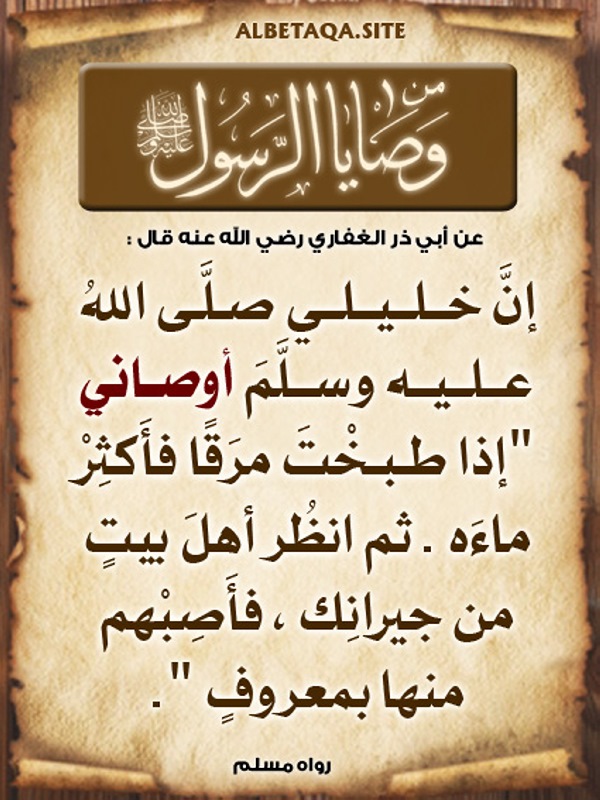 ALBETAQA.SITE
من وصايا الرسول ﷺ
عن أبي ذر الغفاري رضي الله عنه قال :
إنَّ خـلـيـلـي صلَّى اللهُ
عـلـيـه وسـلَّمَ أوصـاني
"إذا طـبـخْتَ مرَقًا فأَكثِرْ
ماءَه . ثم انظُر أهلَ بيتٍ
من جيرانِك ، فأَصِبْهم
منها بمعروفٍ ".
رواه مسلم